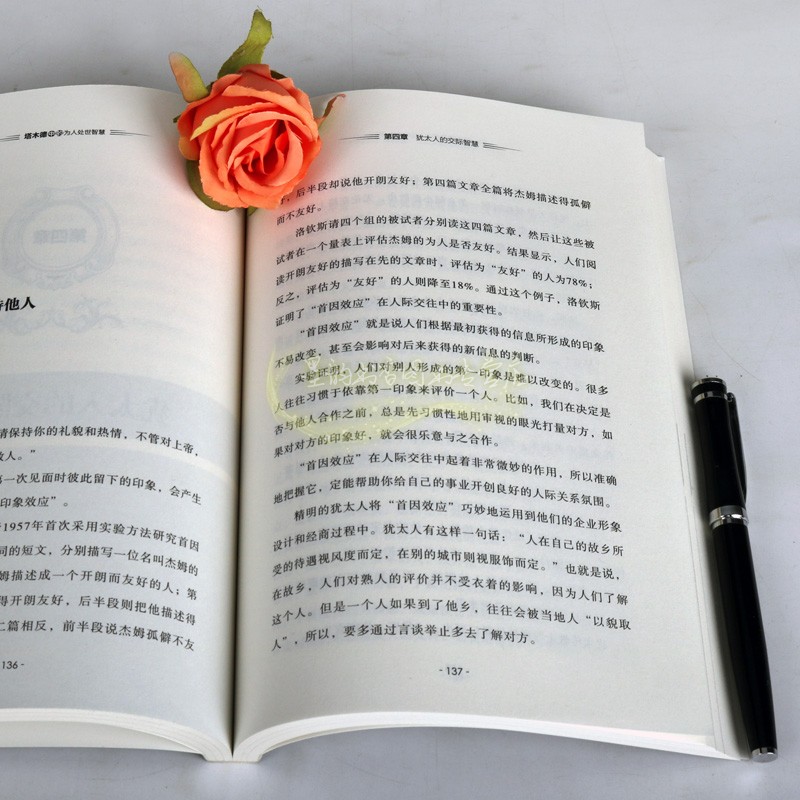 塔木德 为人处世智慧
待他人
请保持你的礼貌和热情，不管对上帝，
敌人。”
一次见面时彼此留下的印象，会产生
印象效应”。
1957年首次采用实验方法研究首因
同的短文，分别描写一位名叫杰姆的
姆描述成一个开朗而友好的人；第
得开朗友好，后半段则把他描述得
二篇相反，前半段说杰姆孤僻不友
136 -
第四章 犹太人的交际智慧
，后半段却说他开朗友好；第四篇文章全篇将杰姆描述得孤僻
而不友好。
洛钦斯请四个组的被试者分别读这四篇文章，然后让这些被
试者在一个量表上评估杰姆的为人是否友好。结果显示，人们阅
读开朗友好的描写在先的文章时，评估为“友好”的人为78%；
反之，评估为“友好”的人则降至18%。通过这个例子，洛钦斯
证明了“首因效应”在人际交往中的重要性。
“首因效应”就是说人们根据最初获得的信息所形成的印象
不易改变，甚至会影响对后来获得的新信息的判断。
实验证明，人们对别人形成的第一印象是难以改变的。很多
人往往习惯于依靠第一印象来评价一个人。比如，我们在决定是
否与他人合作之前，总是先习惯性地用审视的眼光打量对方，如
果对对方的印象好，就会很乐意与之合作。
“首因效应”在人际交往中起着非常微妙的作用，所以准确
地把握它，定能帮助你给自己的事业开创良好的人际关系氛围。
精明的犹太人将“首因效应”巧妙地运用到他们的企业形象
设计和经商过程中。犹太人有这样一句话：“人在自己的故乡所
受的待遇视风度而定，在别的城市则视服饰而定。”也就是说，
在故乡，人们对熟人的评价并不受衣着的影响，因为人们了解
这个人。但是一个人如果到了他乡，往往会被当地人“以貌取
人”，所以，要多通过言谈举止多去了解对方。
- 137 -